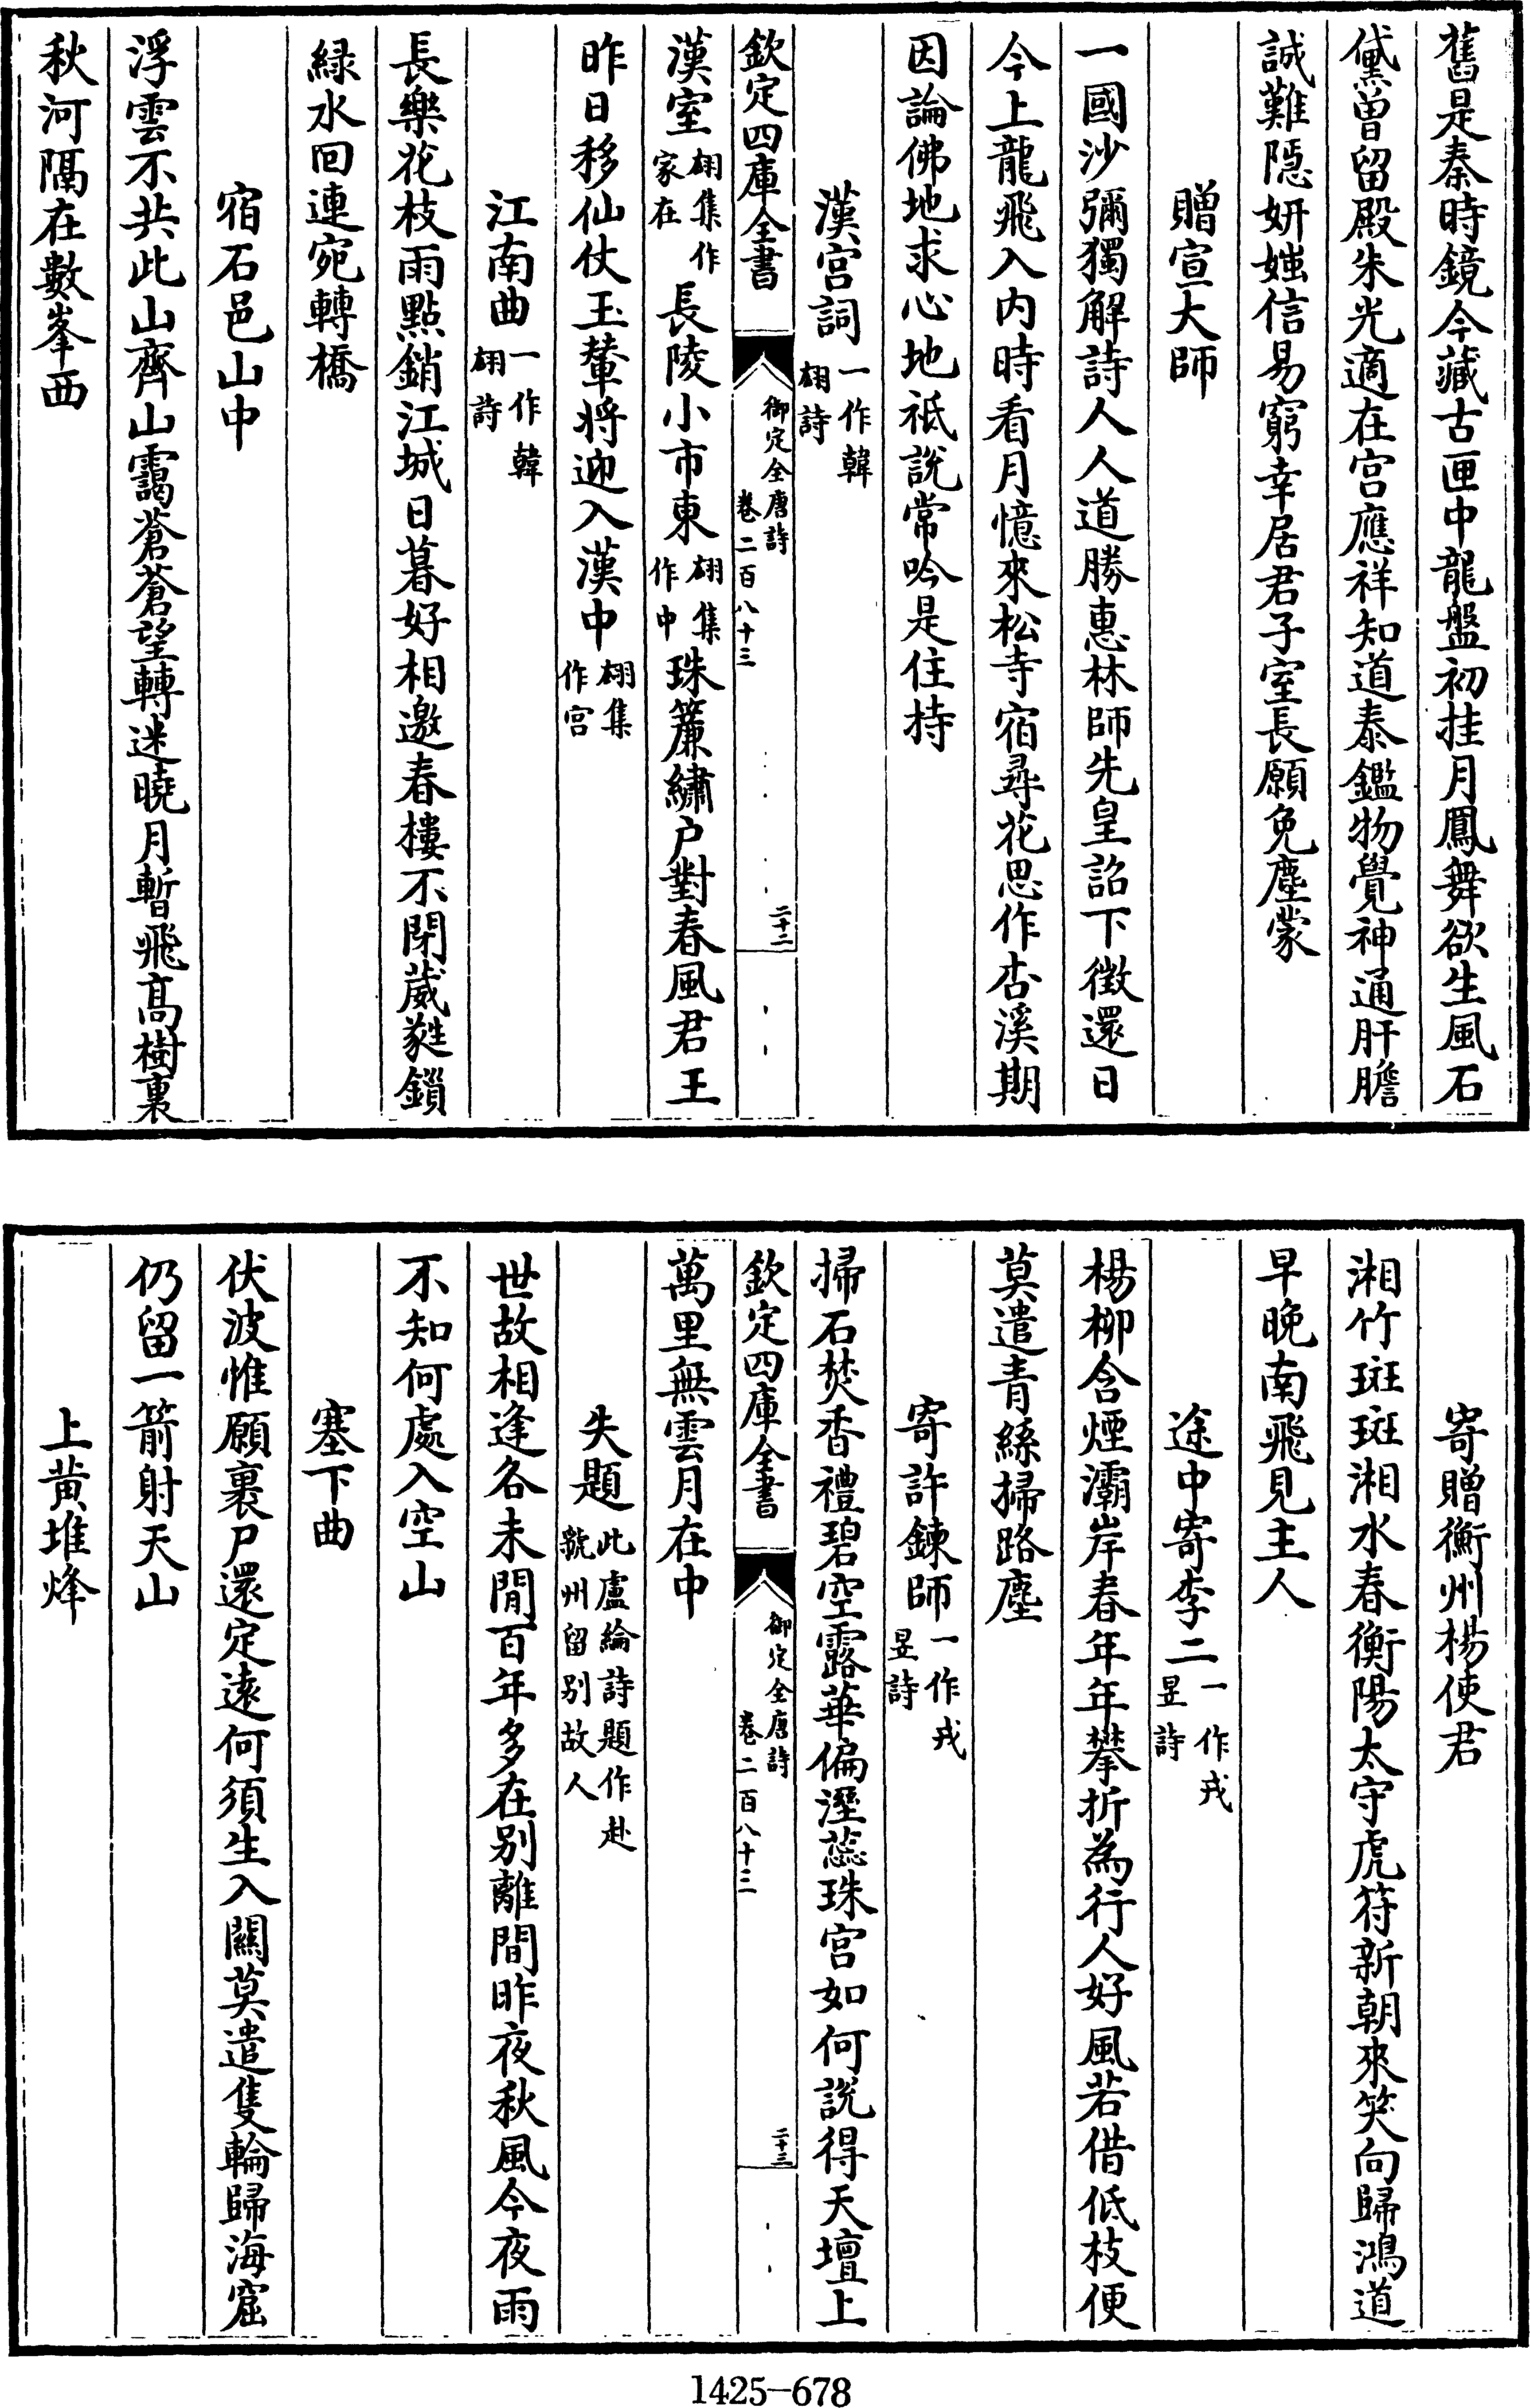 舊是秦時鏡今藏古匣中龍盤初挂月鳳舞欲生風石
黛曽留殿朱光適在宫應祥知道泰鑑物覺神通肝膽
誠難隠妍媸信易窮幸居君子室長願免塵蒙
贈宣大師
一國沙彌獨解詩人人道勝惠林師先皇詔下徴還日
今上龍飛入内時看月憶來松寺宿尋花思作杏溪期
因論佛地求心地祗說常吟是住持
漢宫詞一作韓翃詩
欽定四庫全書
御定全唐詩
卷二百八十三
二十二
漢室翃集作家在長陵小市東翃集作中珠簾繡户對春風君王
昨日移仙仗玉輦將迎入漢中翃集作宫
江南曲一作韓翃詩
長樂花枝雨點銷江城日暮好相邀春樓不閉葳蕤鎖
緑水回連宛轉橋
宿石邑山中
浮雲不共此山齊山靄蒼蒼望轉迷曉月暫飛髙樹裏
秋河隔在數峯西
寄贈衡州楊使君
湘竹斑斑湘水春衡陽太守虎符新朝來笑向歸鴻道
早晚南飛見主人
途中寄李二一作戎昱詩
楊栁含煙灞岸春年年攀折為行人好風若借低枝便
莫遣青絲掃路塵
寄許鍊師一作戎昱詩
掃石焚香禮碧空露華偏溼蕊珠宫如何說得天壇上
欽定四庫全書
御定全唐詩
卷二百八十三
二十三
萬里無雲月在中
失題此盧綸詩題作赴虢州留别故人
世故相逢各未閒百年多在别離間昨夜秋風今夜雨
不知何處入空山
塞下曲
伏波惟願裹尸還定逺何須生入關莫遣隻輪歸海窟
仍留一箭射天山
上黄堆烽
1425-678